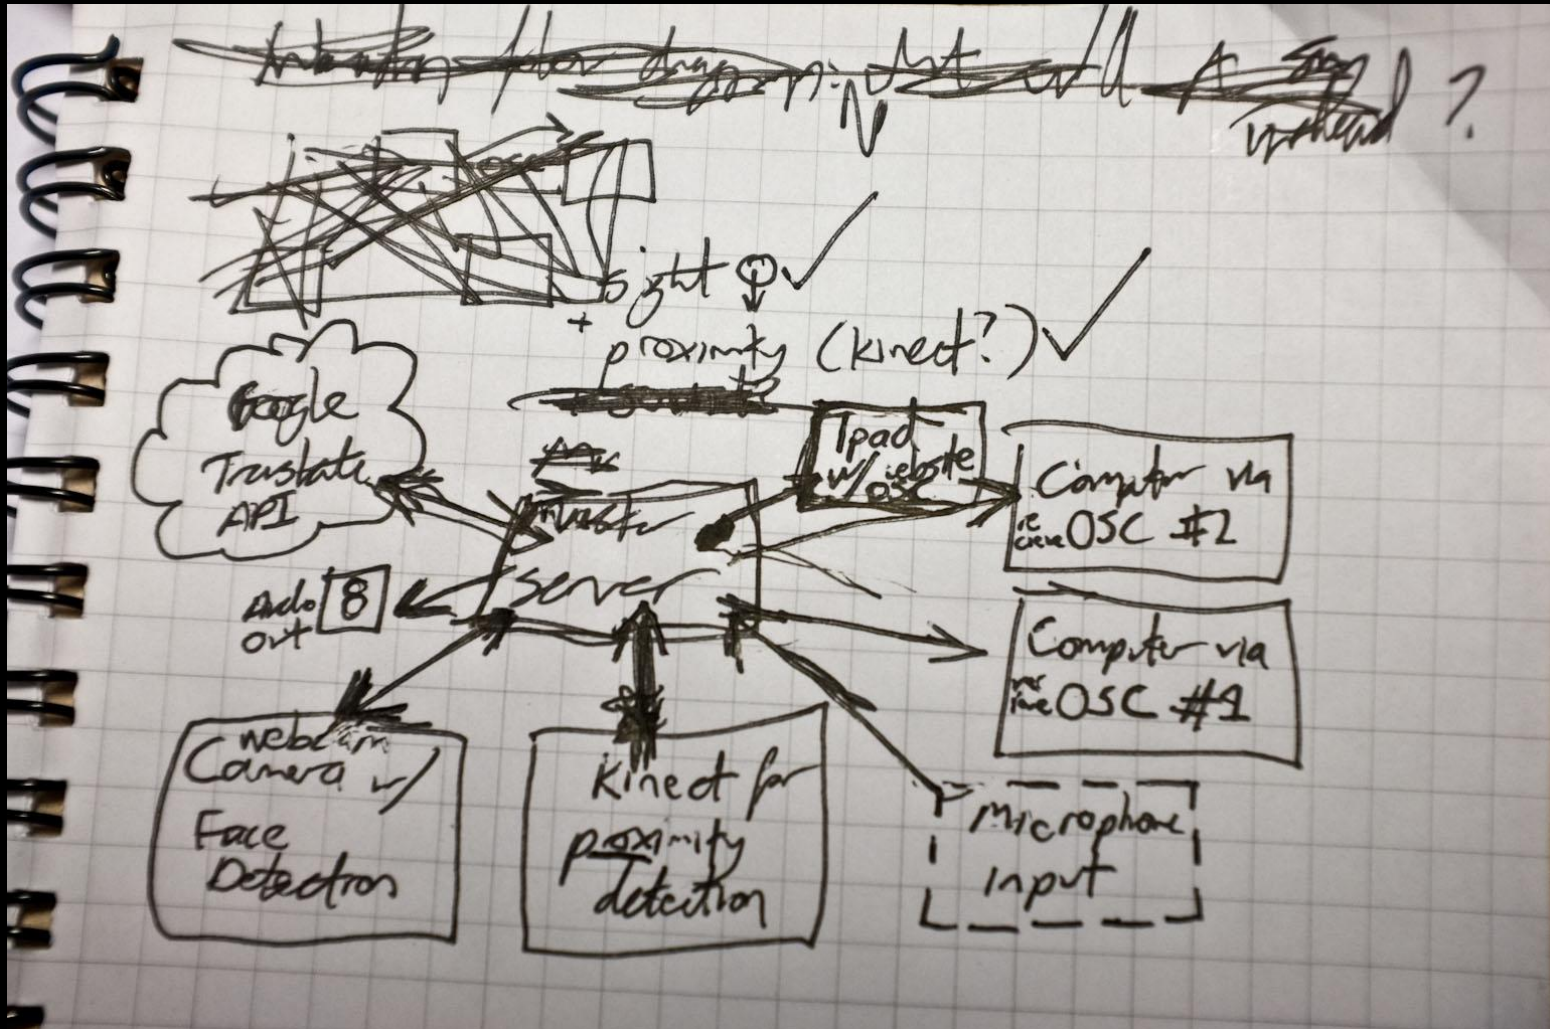 ?
sight
+
proximity (kinect?)
Google
Translate
API
Ipad
w/ website
OSC
Computer via
recieve OSC #2
Master
server
Audio
out
8
Computer via
OSC #1
webcam
Camera w/
Face
Detection
Kinect for
proximity
detection
Microphone
input